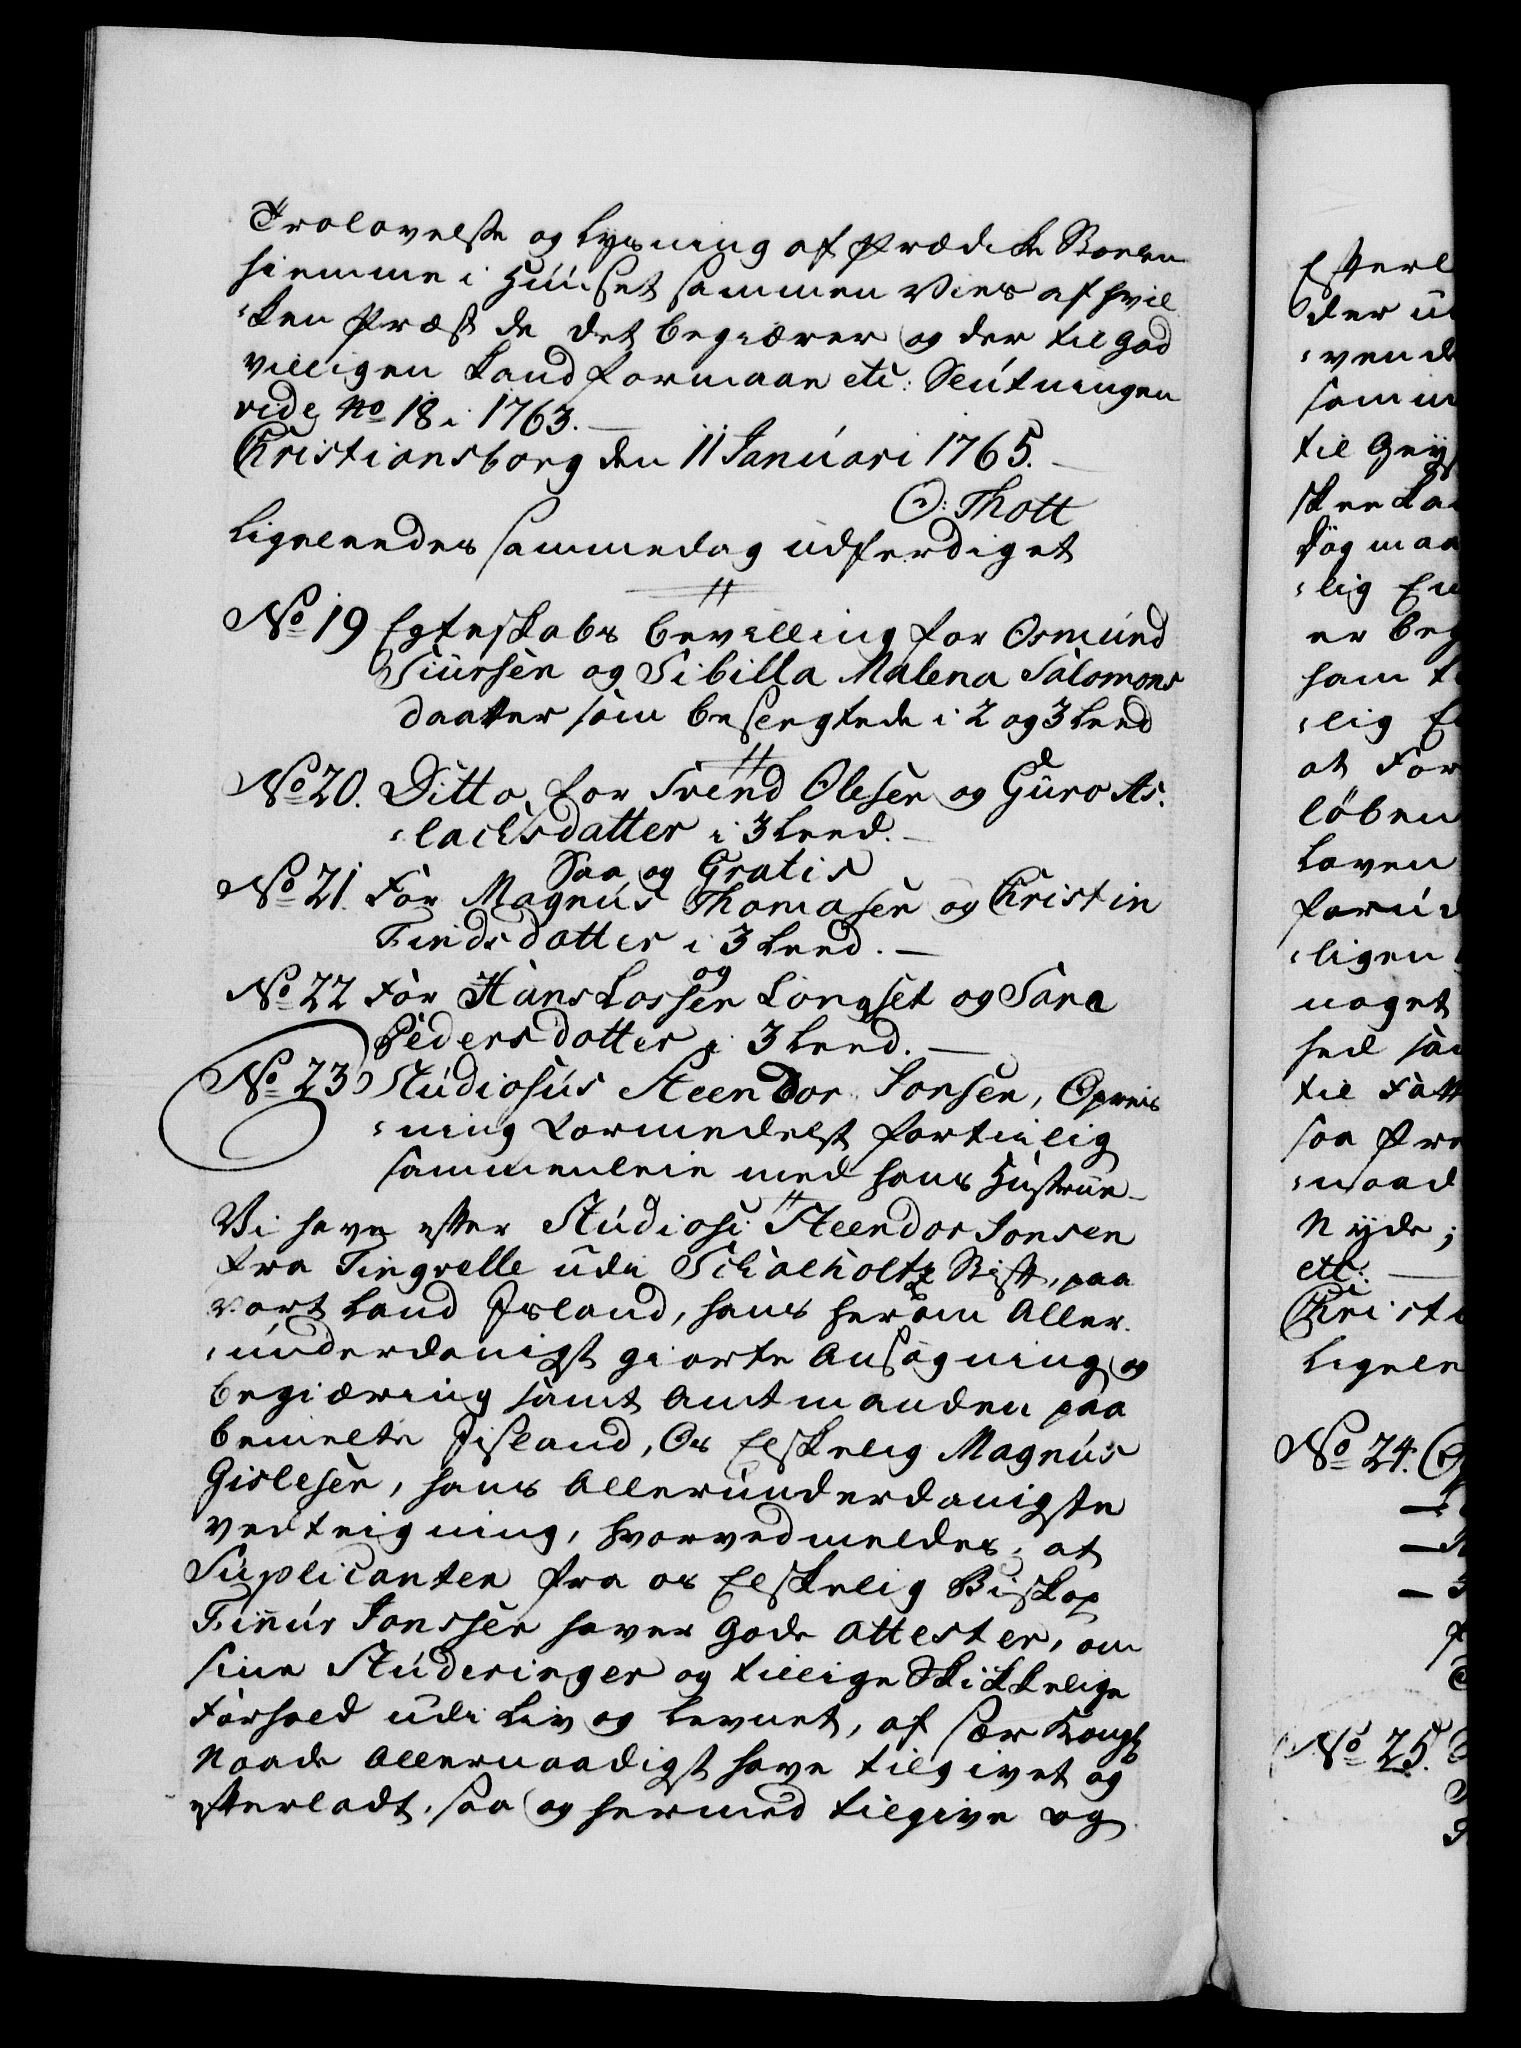 Trolovelse og Lysning af Prædicke Stoelen
hiemme i Huuset sammen Vies af hvil
-ken Præst de det begiærer og der til god
villigen kand formaae etc: Slutningen
vide No 18 i 1763.
Christiansborg den 11 Januari 1765.
O: Thott
Ligeleedes sammedag udferdiget
No 19 Egteskabs bevilling for Osmund
Siursen og Sibilla Malena Salomons
daatter som beslegtede i 2 og 3 Leed
No 20. Ditto, for Svend Olesen og Guro As-
-lachsdatter i 3 Leed.
Saa og Gratis
No 21. For Magnus Thomasen og Christin
Findsdatter i 3 Leed.
No 22 For Hans Lossen og Longset og Sara
Pedersdatter i 3 Leed.
No 23 Studiosus Steendor Jonsen, Opreis
-ning formedelst fortiilig
sammenleie med hans Hustrue
Vi have efter Studiosi Steendor Jonsen
fra Tingvelle udi Schalholtz Stift, paa
vort Land Jisland, hans herom Aller-
-underdanigst giorte Ansøgning og
begiæring samt Amtmanden paa
bemelte Jisland, Os Elskelig Magnus
Gislesen, hans Allerunderdanigste
vedteigning, hvorved meldes, at
Suplicanten fra os Elskelig Biskop
Finnur Jonssen haver gode Attester, om
sine Studeringer og tillige Skikkelige
Forhold udi Liv og Levnet, af sær Kongl
Naade Allernaadigst have tilgivet og
efterladt, saa og hermed tilgive og
Efterl
der u
-vende
samm
til Grij
skee ka
søgmaa
-lig En
er beg
ham t
-lig E
at For
löben
Loven
forud
-ligen
noget
hed sa
til Fatt
saa fre
-naad
Nyde;
etc:
Christ
Ligele
No 24.
No 25.